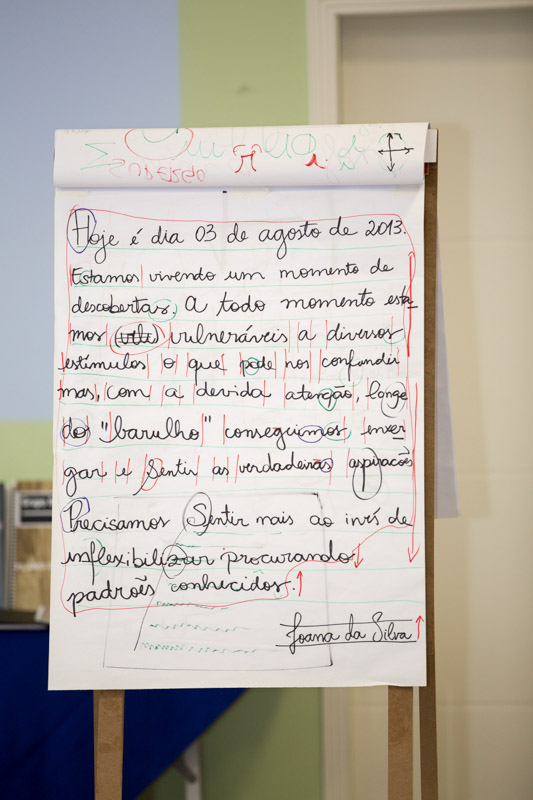 Hoje é dia 03 de agosto de 2013.
Estamos vivendo um momento de
descobertas. A todo momento esta-
mos vulneráveis a diversos
estímulos o que pode nos confundir
mas, com a devida atenção, longe
do "barulho" conseguimos enxer-
gar e sentir as verdadeiras aspirações
Precisamos Sentir mais ao invés de
inflexibilizar procurando
padrões conhecidos.
Joana da Silva